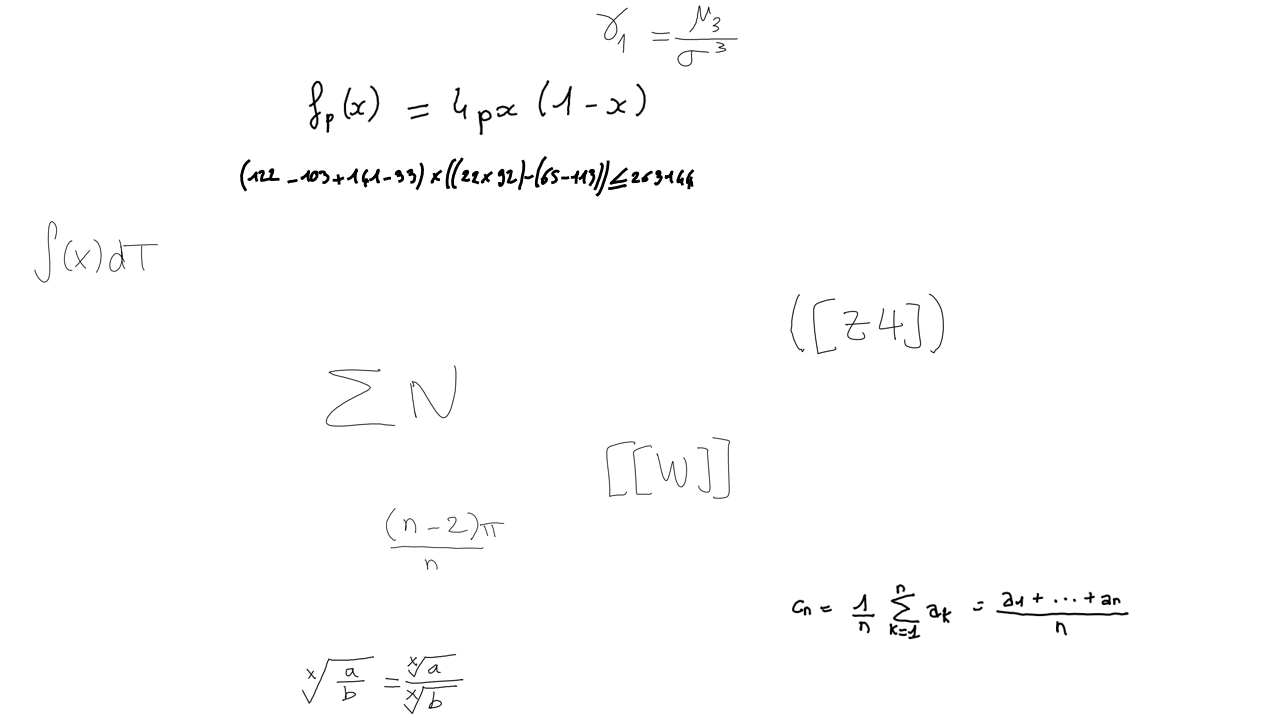 γ₁ = μ₃/σ³
fₚ(x) = 4px (1 - x)
(122 - 103 + 141 - 33) × ((22 × 92) - (65 - 113)) ≤ 263144
∫(x)dT
([z4])
∑N
[[W]]
(n - 2)π/n
cₙ = 1/n ∑ₖ₌₁ⁿ aₖ = (a₁ + ... + aₙ)/n
ˣ√(a/b) = ˣ√a/ˣ√b